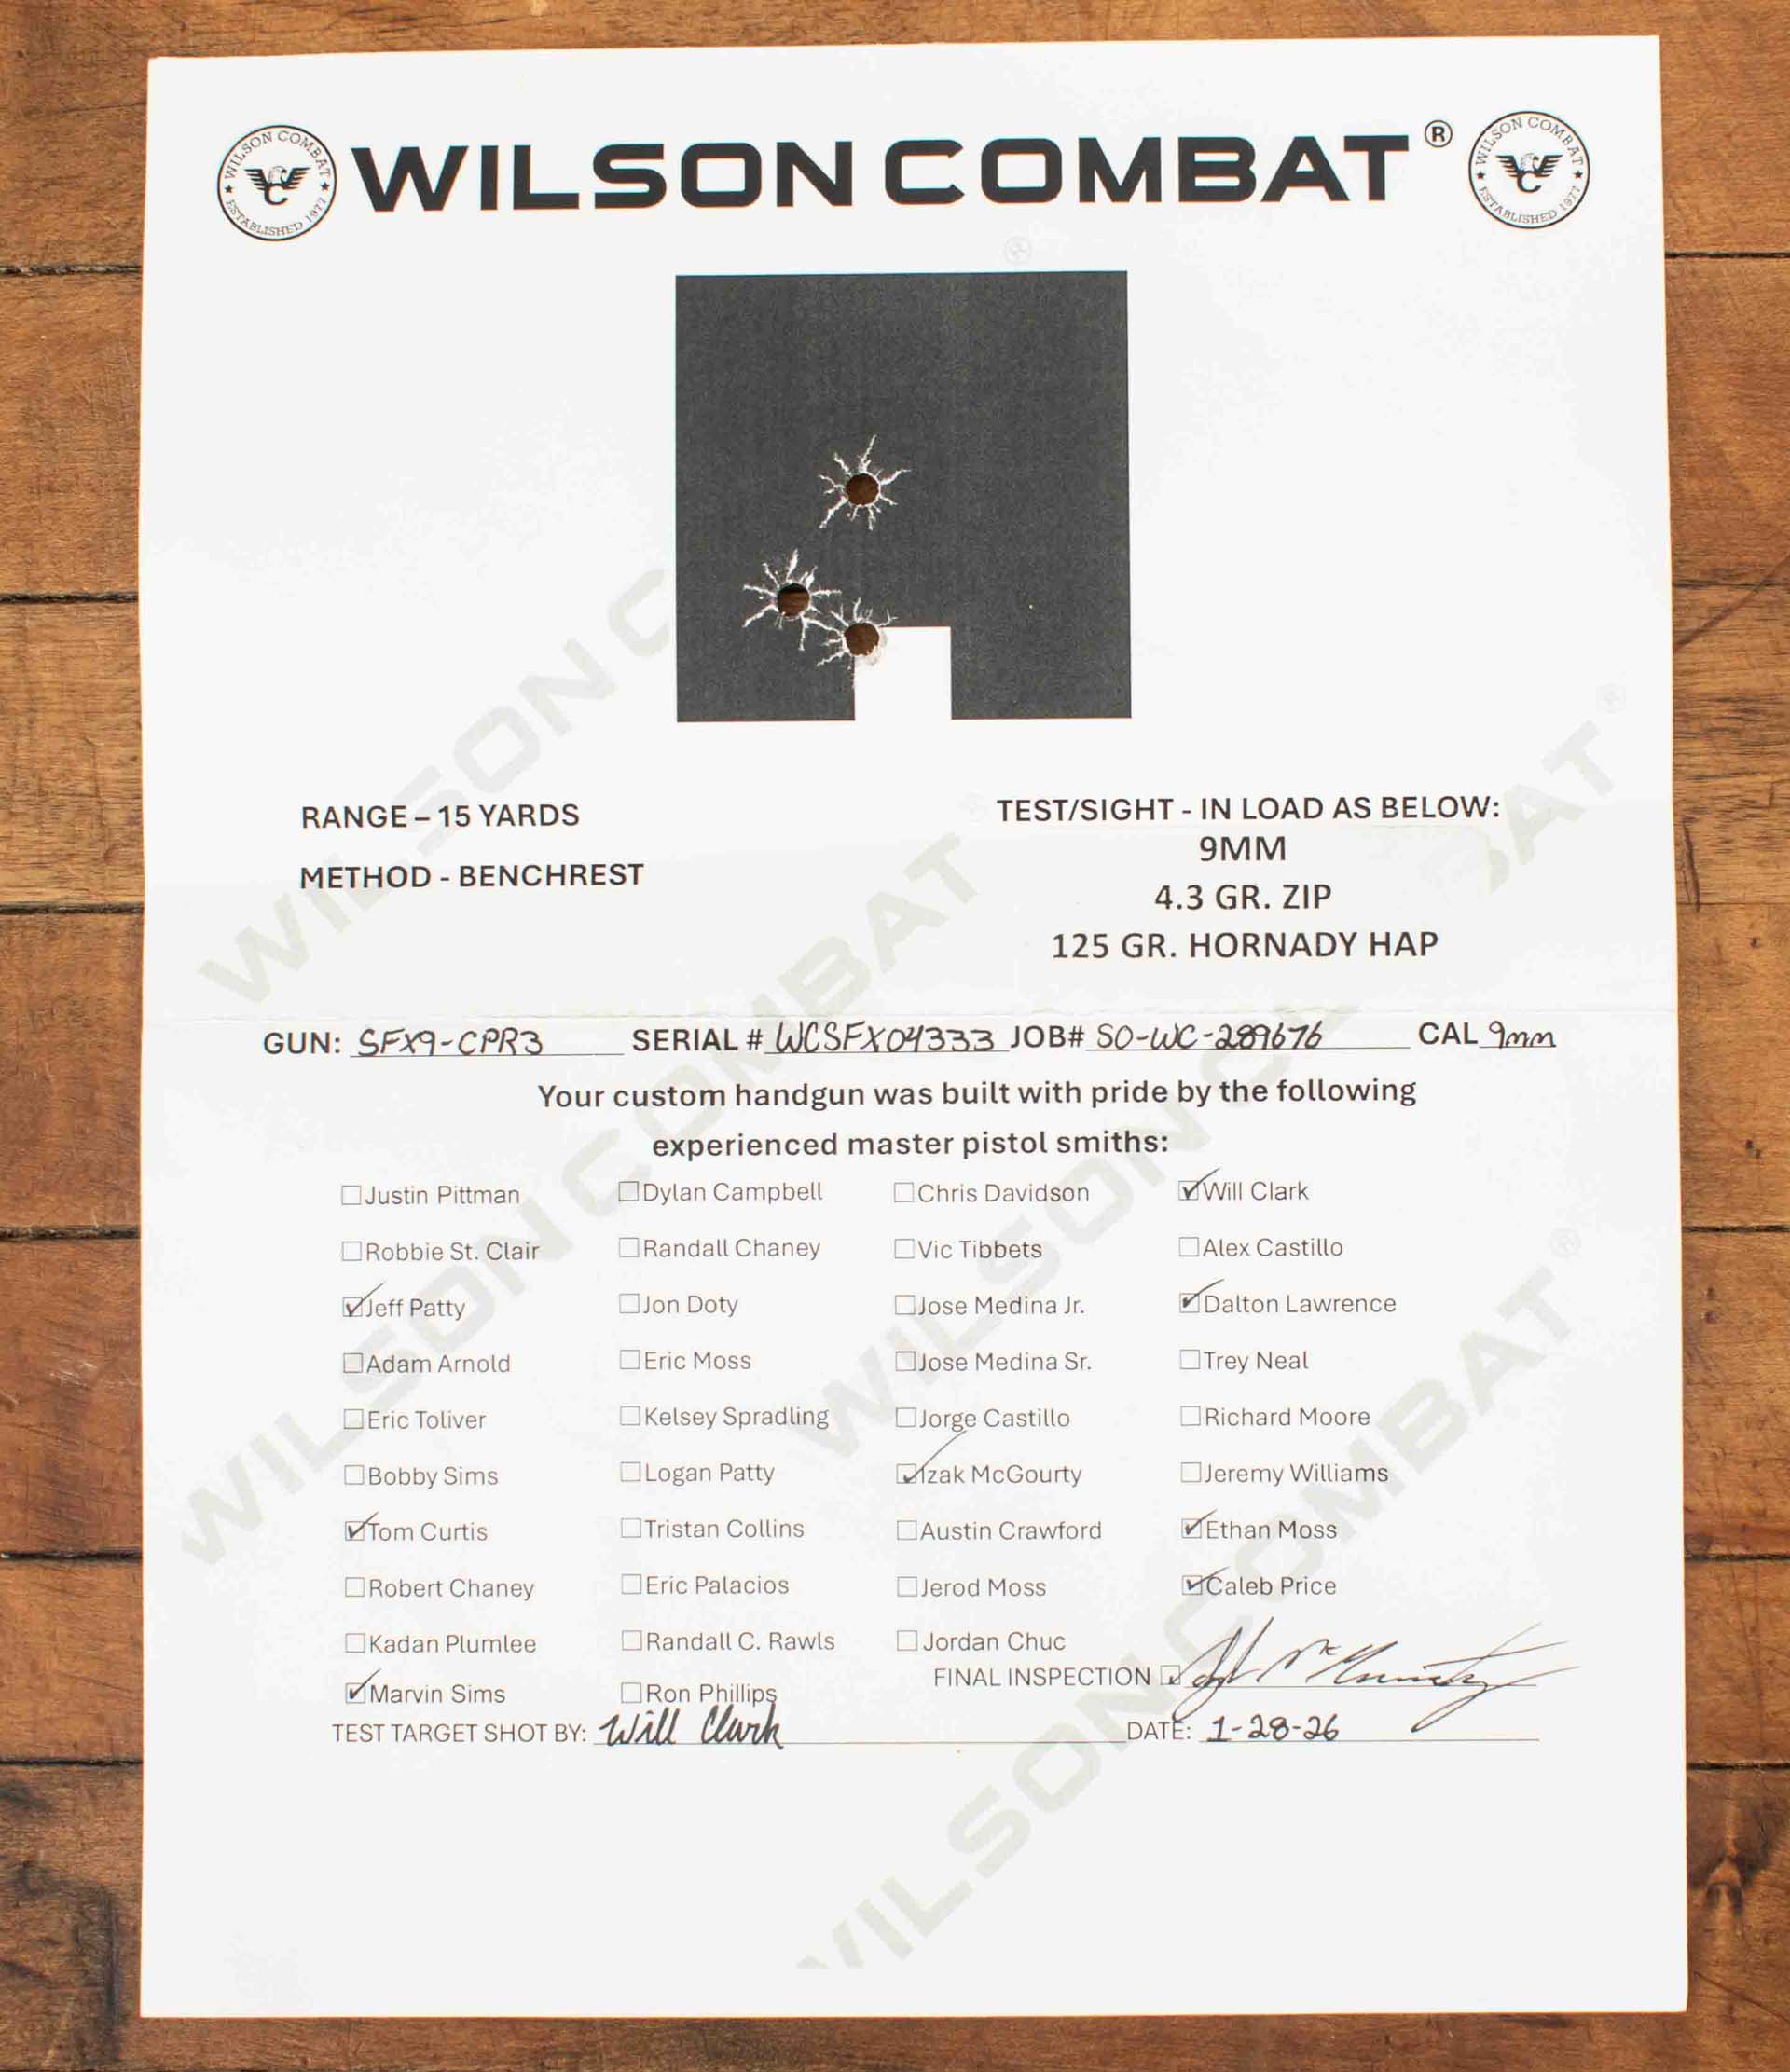 WILSON COMBAT ESTABLISHED 1977
WILSON COMBAT®
WILSON COMBAT ESTABLISHED 1977
RANGE – 15 YARDS
METHOD - BENCHREST
TEST/SIGHT - IN LOAD AS BELOW:
9MM
4.3 GR. ZIP
125 GR. HORNADY HAP
GUN: SFX9-CPR3 SERIAL # WCSFX04333 JOB# SO-WC-289676 CAL 9mm
Your custom handgun was built with pride by the following
experienced master pistol smiths:
Justin Pittman Dylan Campbell Chris Davidson Will Clark
Robbie St. Clair Randall Chaney Vic Tibbets Alex Castillo
Jeff Patty Jon Doty Jose Medina Jr. Dalton Lawrence
Adam Arnold Eric Moss Jose Medina Sr. Trey Neal
Eric Toliver Kelsey Spradling Jorge Castillo Richard Moore
Bobby Sims Logan Patty Izak McGourty Jeremy Williams
Tom Curtis Tristan Collins Austin Crawford Ethan Moss
Robert Chaney Eric Palacios Jerod Moss Caleb Price
Kadan Plumlee Randall C. Rawls Jordan Chuc
FINAL INSPECTION
Marvin Sims Ron Phillips
TEST TARGET SHOT BY: Will Clark DATE: 1-28-26
WILSON COMBAT
WILSON COMBAT
WILSON COMBAT
WILSON COMBAT